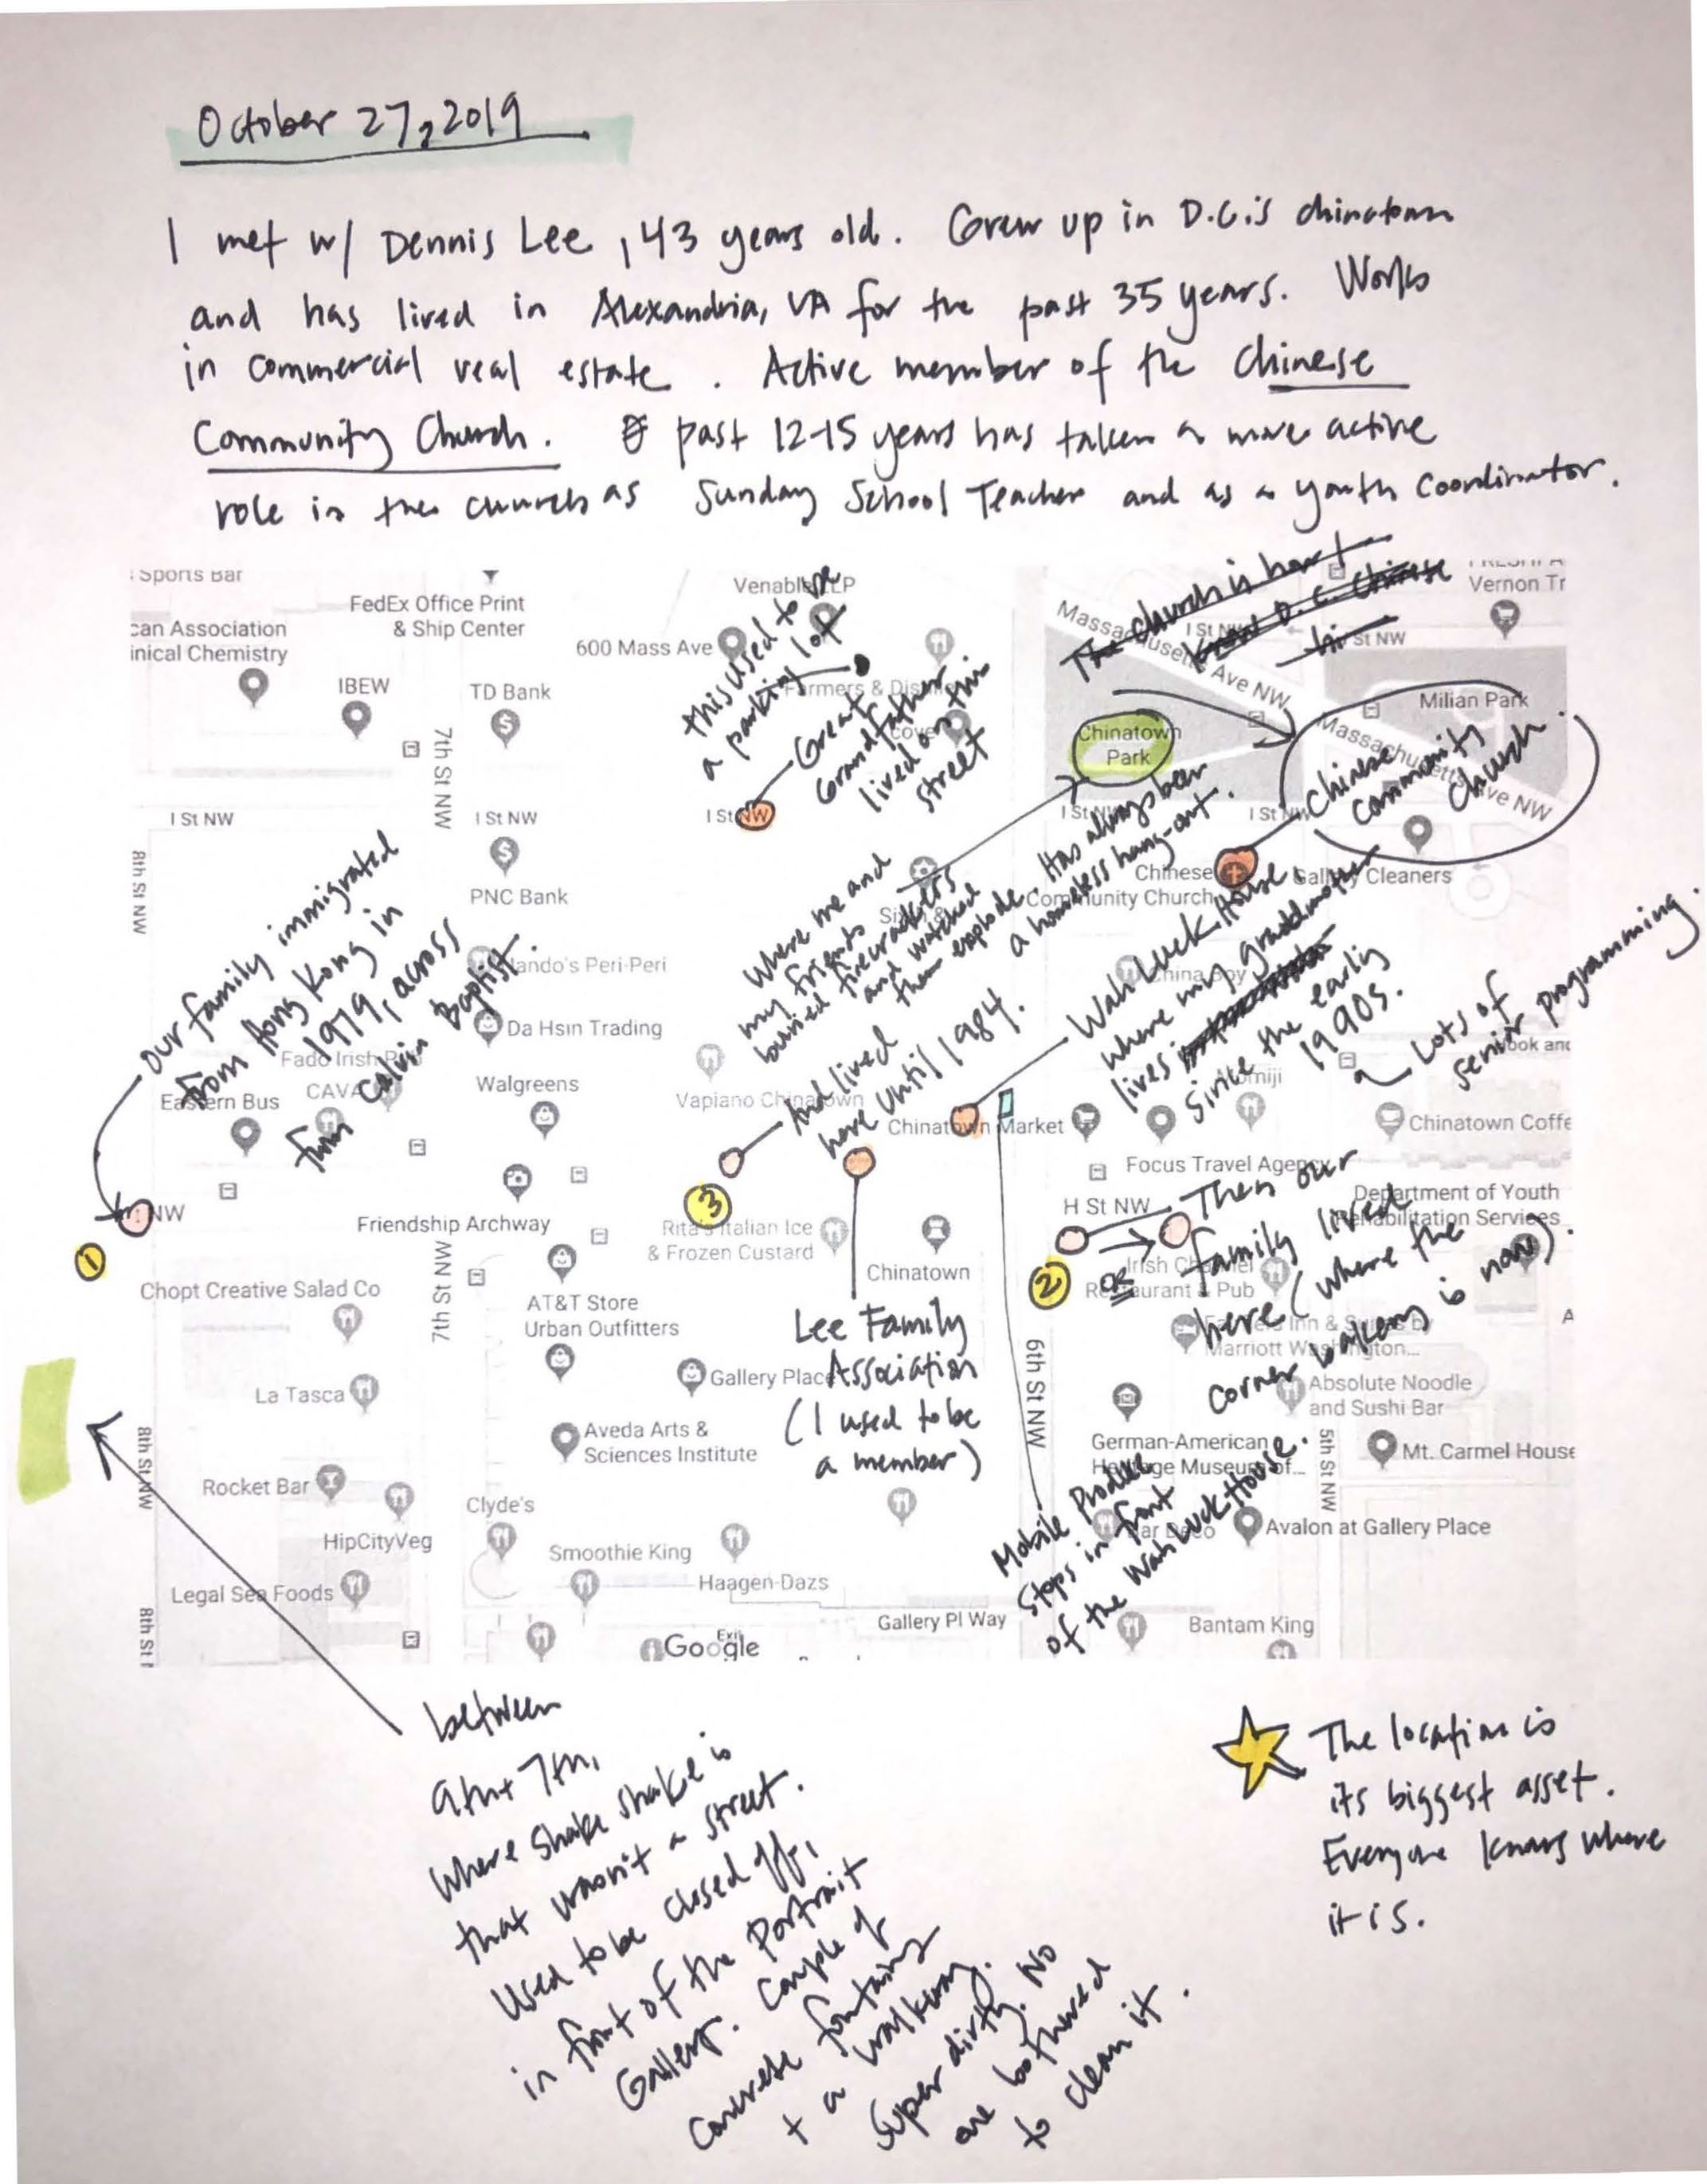 October 27, 2019
I met w/ Dennis Lee, 43 years old. Grew up in D.C.'s chinatown
and has lived in Alexandria, VA for the past 35 years. Works
in commercial real estate. Active member of the Chinese
Community Church. past 12-15 years has taken a more active
role in the church as Sunday School Teacher and as a youth coordinator.
The church is heart
D.C. Chinese
Sports Bar
FedEx Office Print
& Ship Center
can Association
inical Chemistry
IBEW
TD Bank
600 Mass Ave
Venable LLP
this used to be
a parking lot
Farmers & Dis
Great
Grandfather
lived on this
street
Massachusetts Ave NW
I St NW
St NW
Vernon Tr
Milian Park
Massachusetts Ave NW
Chinatown
Park
Chinese
Community
Church.
7th St NW
I St NW
I St NW
I St NW
I St NW
I St NW
8th St NW
PNC Bank
Chinese
Community Church
Gallery Cleaners
Where me and
my friends
buried firecrackers
and watched
them explode.
Has always been
a homeless hang-out.
Our family immigrated
from Hong Kong in
1979, across
from Calvin Baptist.
Nando's Peri-Peri
Da Hsin Trading
Fado Irish P
CAVA
Eastern Bus
Walgreens
China Boy
Wah Luck House
where my grandmother
lives
since the early
1990s.
Lots of
senior programming.
ook and
omiji
And lived
here until 1984.
Vapiano Chinatown
Chinatown Market
Chinatown Coffe
Focus Travel Agency
H St NW
Department of Youth
Rehabilitation Services
NW
1
Friendship Archway
3
Rita's Italian Ice
& Frozen Custard
Chinatown
2
OR
Then our
family lived
here (where the
corner bakery is now).
Irish Channel
Restaurant & Pub
Inn & Suites by
Marriott Washington...
Chopt Creative Salad Co
7th St NW
AT&T Store
Urban Outfitters
Lee Family
Association
(I used to be
a member)
6th St NW
Gallery Place
La Tasca
Absolute Noodle
and Sushi Bar
Aveda Arts &
Sciences Institute
German-American
Heritage Museum of...
5th St NW
Mt. Carmel House
8th St NW
Rocket Bar
Clyde's
Mobile Produce
stops in front
of the Wah Luck House.
Bar Deco
Avalon at Gallery Place
HipCityVeg
Smoothie King
Legal Sea Foods
Haagen-Dazs
8th St
Gallery Pl Way
Bantam King
Exit
Google
between
9th + 7th,
where Shake Shake is
that wasn't a street.
Used to be closed off,
in front of the Portrait
Gallery. Couple of
concrete fontains
+ a walkway.
Super dirty. No
one bothered
to clean it.
The location is
its biggest asset.
Everyone knows where
it is.